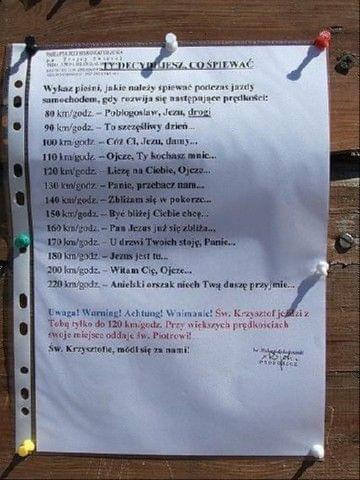 TY DECYDUJESZ, CO ŚPIEWAĆ
Wykaz pieśni, jakie należy śpiewać podczas jazdy
samochodem, gdy rozwija się następujące prędkości:
80 km/godz. – Pobłogosław, Jezu, drogi
90 km/godz. – To szczęśliwy dzień...
100 km/godz. – Cóż Ci, Jezu, damy...
110 km/godz. – Ojcze, Ty kochasz mnie...
120 km/godz. – Liczę na Ciebie, Ojcze...
130 km/godz. – Panie, przebacz nam...
140 km/godz. – Zbliżam się w pokorze...
150 km/godz. – Być bliżej Ciebie chcę...
160 km/godz. – Pan Jezus już się zbliża...
170 km/godz. – U drzwi Twoich stoję, Panie...
180 km/godz. – Jezus jest tu...
200 km/godz. – Witam Cię, Ojcze...
220 km/godz. – Anielski orszak niech Twą duszę przyjmie...
Uwaga! Warning! Achtung! Wnimanie! Św. Krzysztof jeździ z
Tobą tylko do 120 km/godz. Przy większych prędkościach
swoje miejsce oddaje św. Piotrowi!
Św. Krzysztofie, módl się za nami!